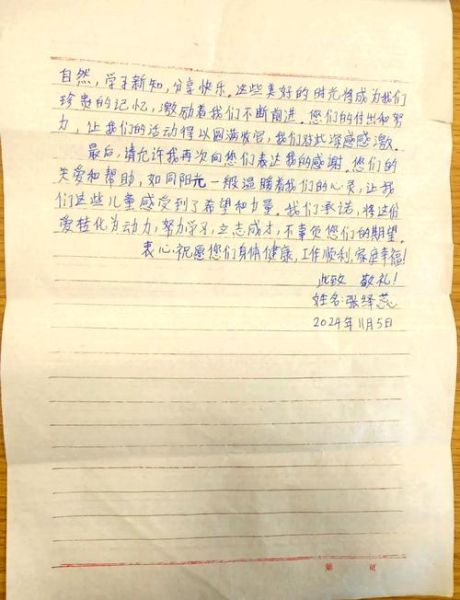 自然，学到新知，分享快乐。这些美好的时光将成为我们
珍贵的记忆，激励着我们不断前进。您们的付出和努
力，让我们的活动得以圆满发召，我们对此深感感激。
最后，请允许我再次向您们表达我的感谢。您们的
关爱和帮助，如同阳光一般温暖着我们的心灵，让我
们这些儿童感受到了希望和力量。我们承诺，将这份
爱转化为动力，努力学习，立志成才，不辜负您们的期望。
衷心祝愿您们身体健康，工作顺利，家庭幸福！
此致 敬礼！
姓名：张绎蕊
2024年11月5日
第 页